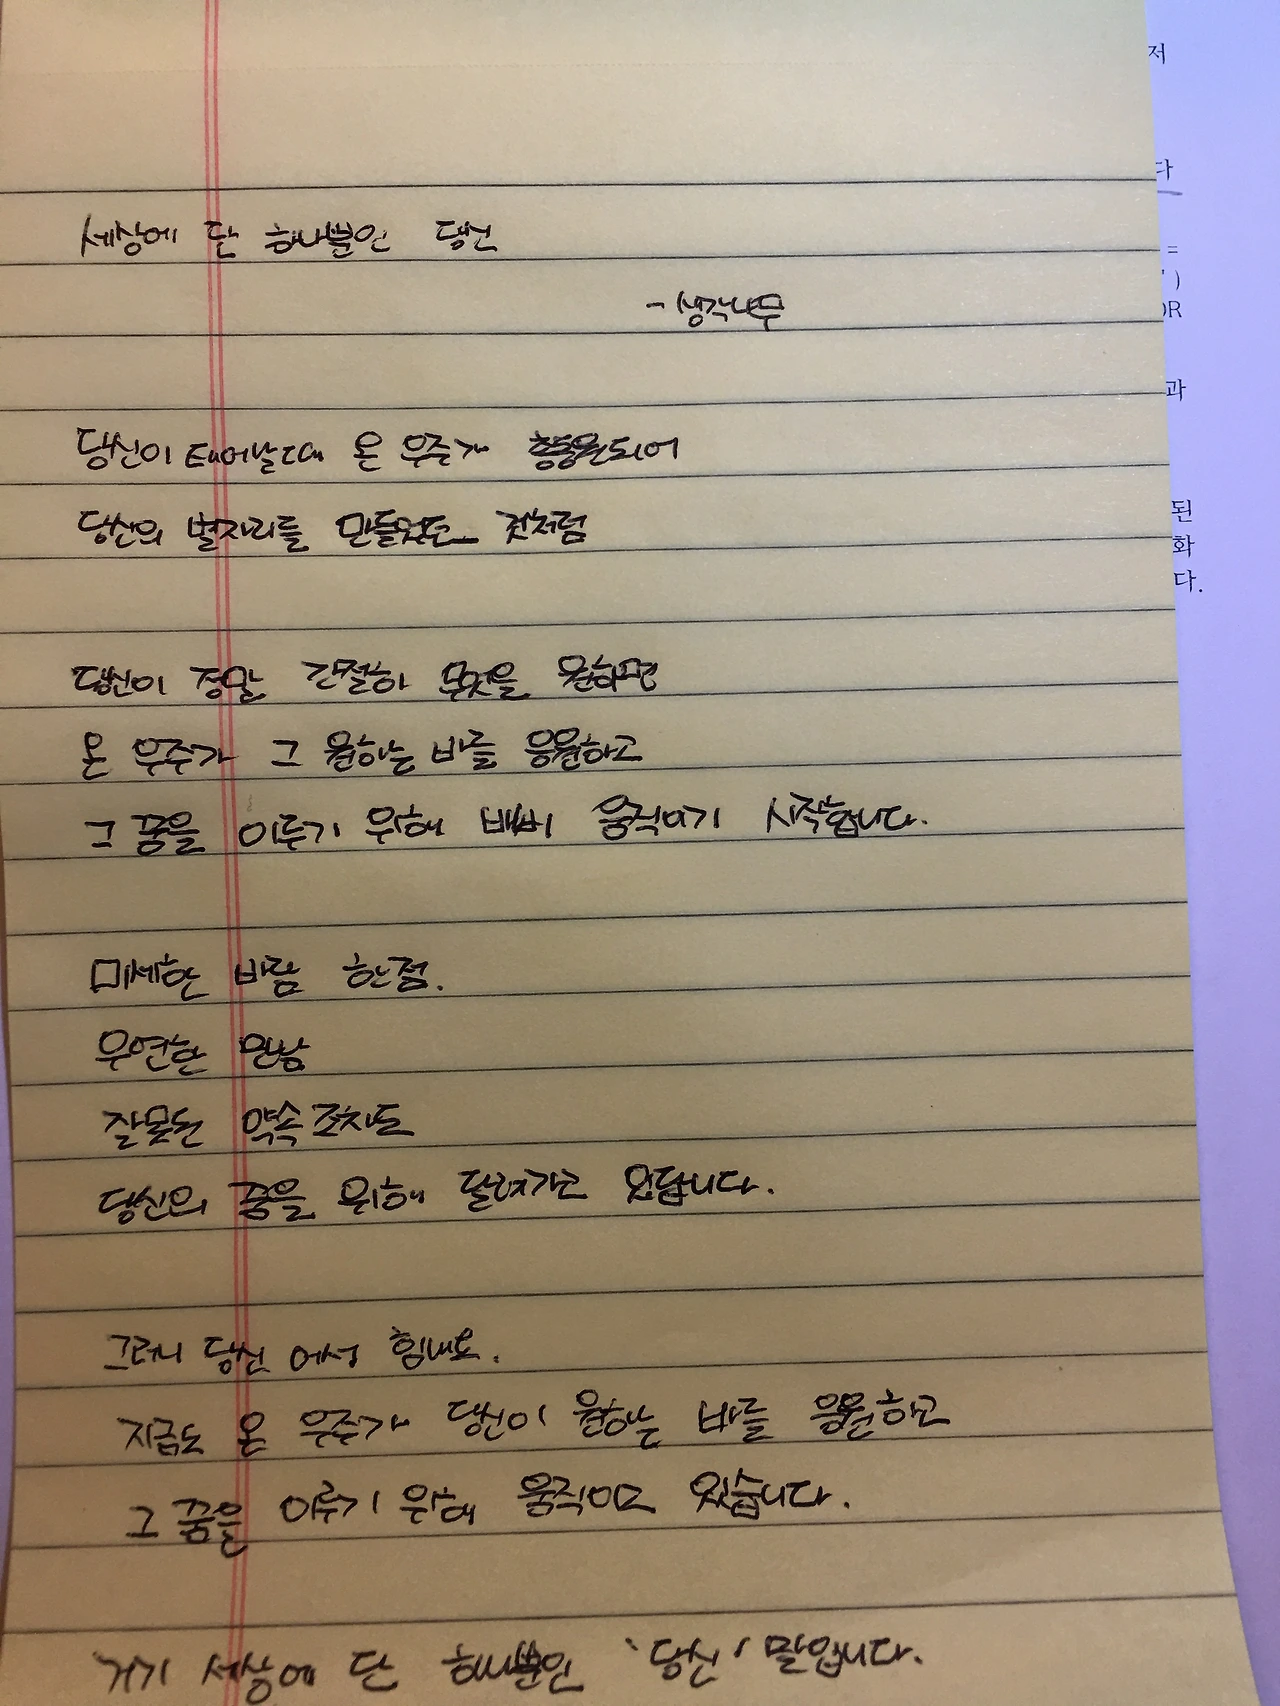 세상에 단 하나뿐인 당신
- 생각나무
당신이 태어날때 온 우주가 총동원되어
당신의 별자리를 만들었던 것처럼
당신이 정말 간절히 무엇을 원하면
온 우주가 그 원하는 바를 응원하고
그 꿈을 이루기 위해 바삐 움직이기 시작합니다.
미세한 바람 한점.
우연한 만남
잘못된 약속조차도
당신의 꿈을 위해 달려가고 있답니다.
그러니 당신 어서 힘내요.
지금도 온 우주가 당신이 원하는 바를 응원하고
그 꿈을 이루기 위해 움직이고 있습니다.
거기 세상에 단 하나뿐인 '당신' 말입니다.
저
다
=
' )
OR
과
된
화
다.